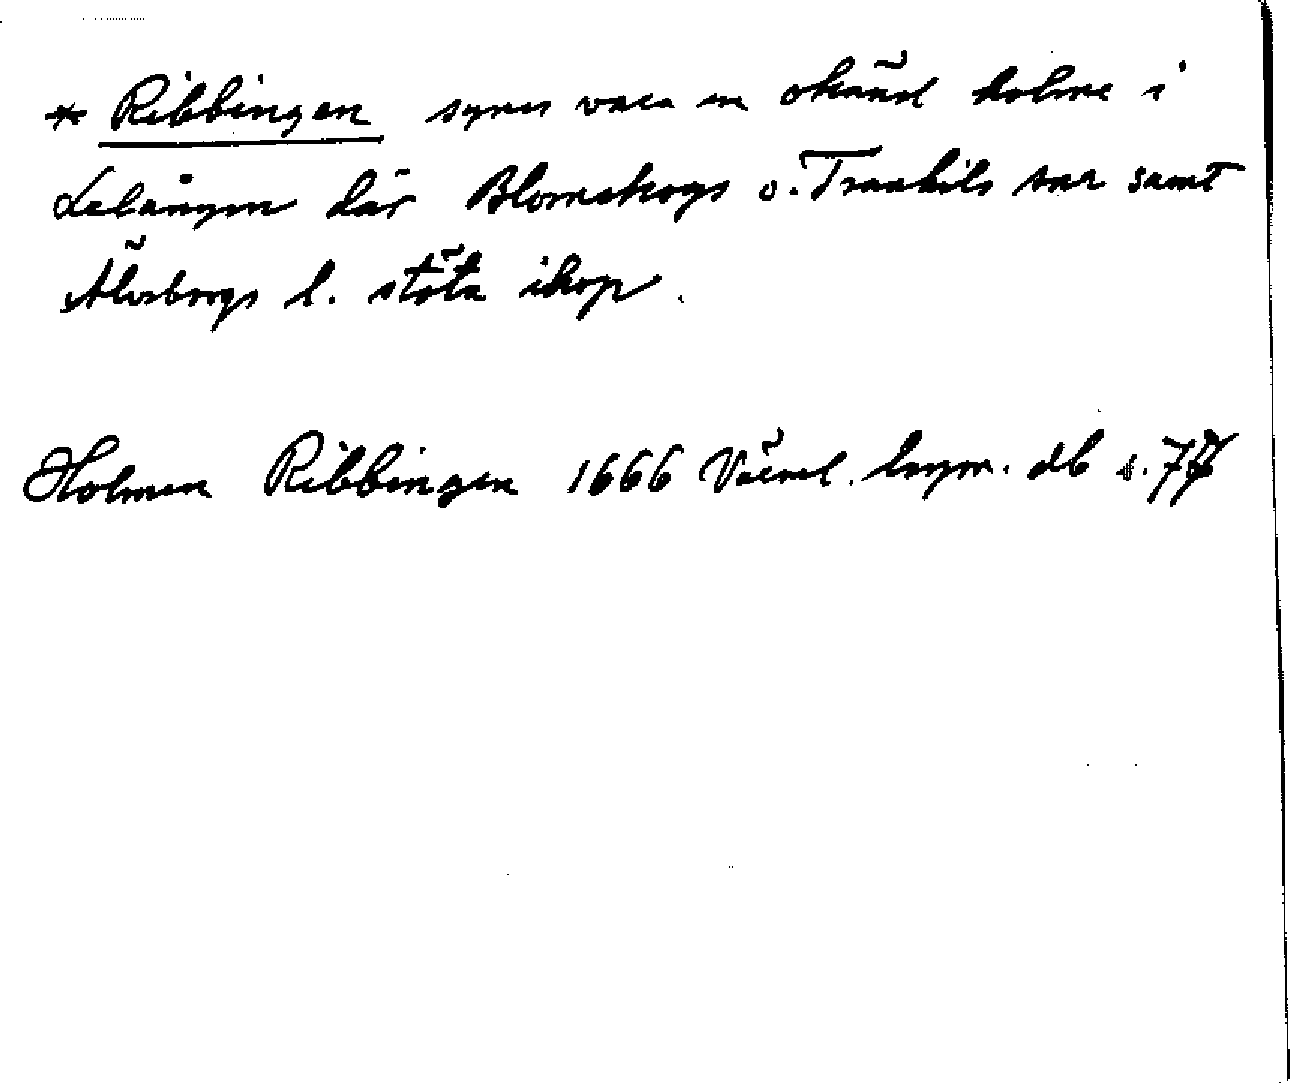 * Ribbingen synes vara en okänd holme i
Lelången där Blomskogs o. Trankils snr samt
Älvsborgs l. stöta ihop.
Holmen Ribbingen 1666 Värml. lmt. db s.